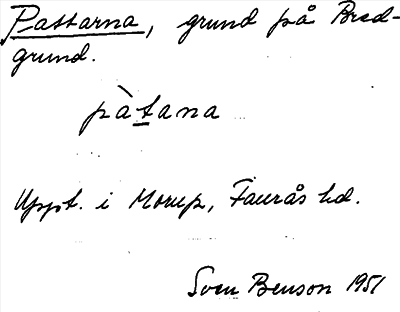 Pattarna, grund på Bred-
grund.
pàtana
Uppt. i Morup, Faurås hd.
Sven Benson 1951